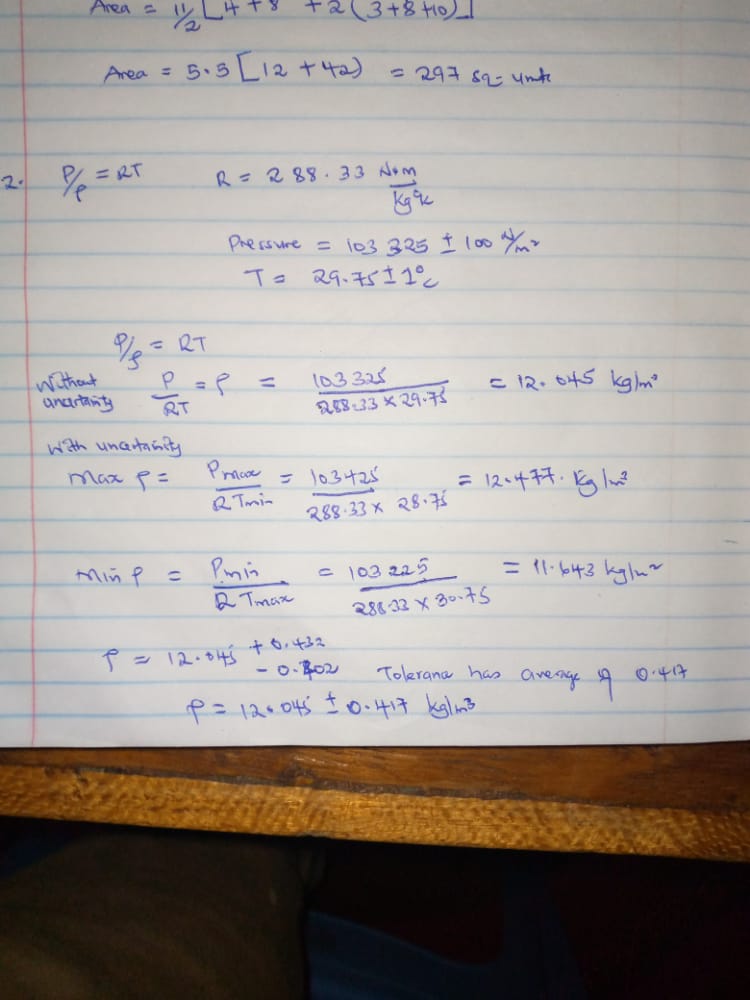 Area = 11/2 [4 + 8 + 2 (3+8+10)]
Area = 5.5 [12 + 42) = 297 sq- units
2. P/ρ = RT R = 288.33 N*m/kg°k
Pressure = 103 325 ± 100 N/m²
T = 29.75 ± 1°c
P/ρ = RT
Without uncertainty P/RT = ρ = 103 325/288.33 × 29.75 = 12.045 kg/m³
With uncertainity
Max ρ = Pmax/RTmin = 103425/288.33 × 28.75 = 12.477. kg/m³
Min ρ = Pmin/RTmax = 103 225/288.33 × 30.75 = 11.643 kg/m²
ρ = 12.045 + 0.432 - 0.402 Tolerance has average of 0.417
ρ = 12.045 ± 0.417 kg/m³